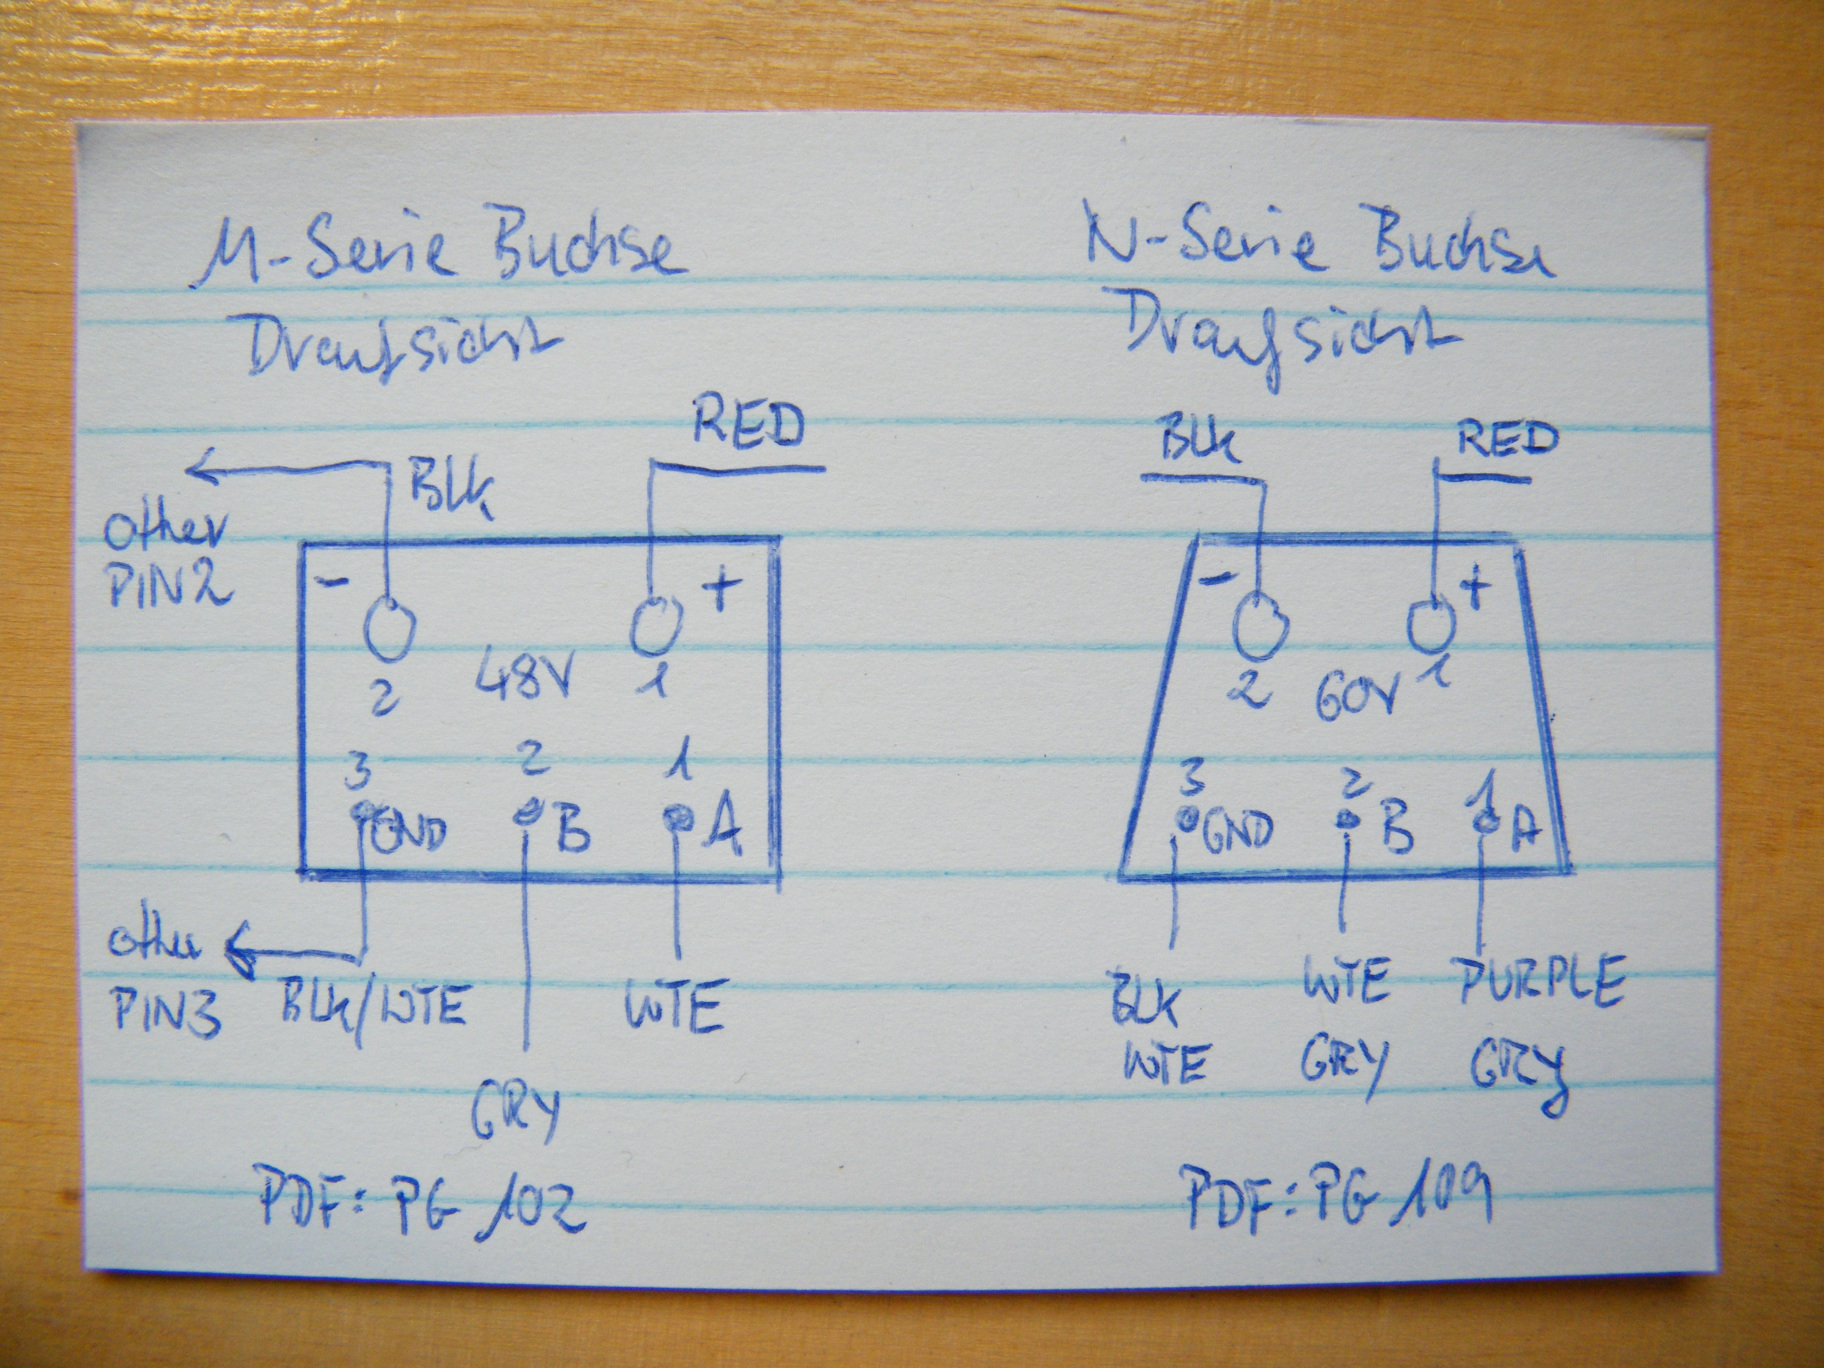 M-Serie Buchse
Draufsicht
RED
BLK
other
PIN2
- +
2 48V 1
3 2 1
GND B A
other
PIN3
BLK/WTE WTE
GRY
PDF: PG 102
N-Serie Buchse
Draufsicht
BLK RED
- +
2 60V 1
3 2 1
GND B A
BLK WTE PURPLE
WTE GRY GRY
PDF: PG 109